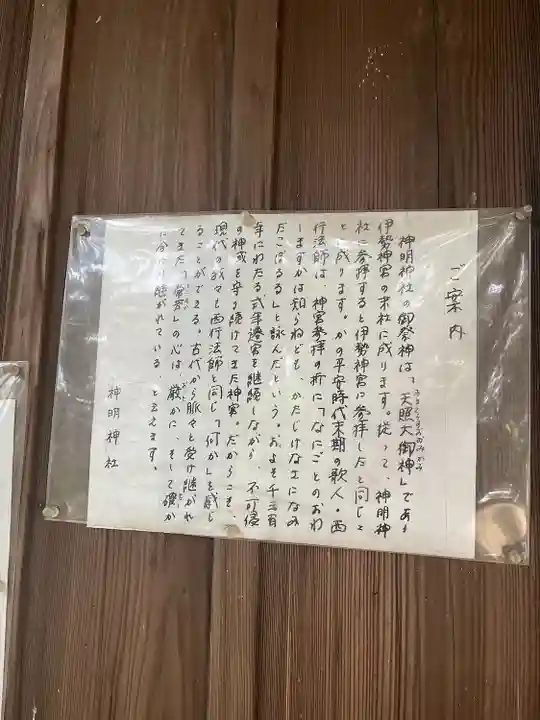 ご案内
神明神社の御祭神は、「天照大御神」である
伊勢神宮の末社に成ります。従って、神明神
社に参拝すると伊勢神宮に参拝したと同じこ
と成ります。かの平安時代末期の歌人・西
行法師は、神宮参拝の折に「なにごとのおわ
しますかは知らねども、かたじけなさになみ
だこぼるる」と詠んだという。およそ千三百
年にわたる式年遷宮を継続しながら、不可侵
の神域を守り続けてきた神宮。だからこそ、
現代の我々も西行法師と同じ「何か」を感じ
ることができる。古代から脈々と受け継がれ
てきた「常若」の心は、厳かに、そして確か
に今に息づいている、と云えます。
神明神社